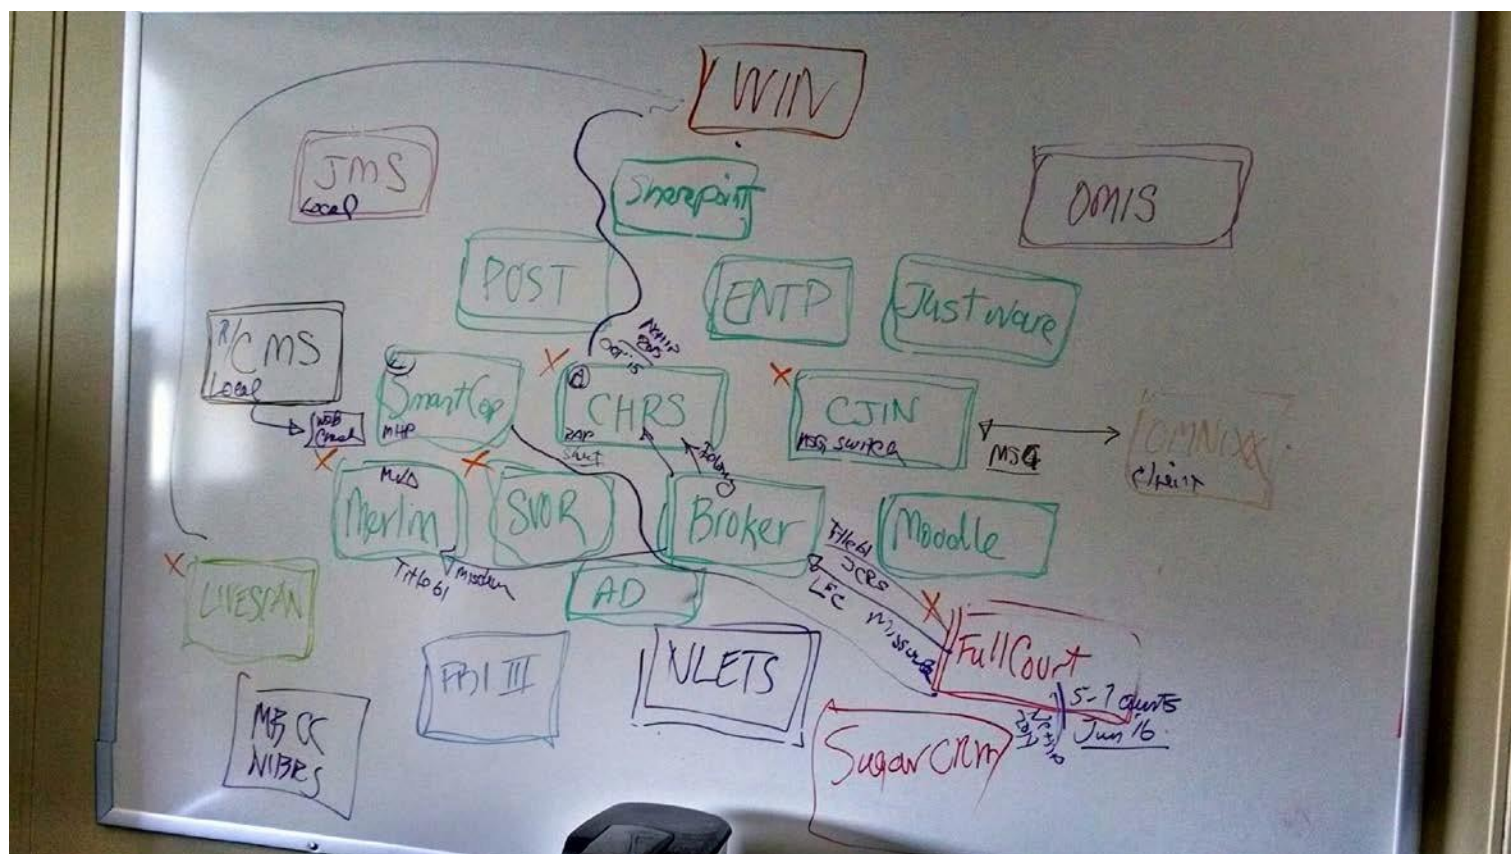 WIN
JMS
Local
Sharepoint
OMIS
POST
ENTP
Justware
R/CMS
Local
WEB
Crash
SmartCop
MHP
CHRS
RAP
Sheet
CJIN
MSG SWITCH
MSG
OMNIXX
Client
MVD
Merlin
SVOR
Broker
Moodle
Title 61
AD
Title 61
JCRS
LEC
LIVESCAN
FBI III
NLETS
FullCourt
5-7 courts
Jun '16
MBCC
NIBRS
SugarCRM